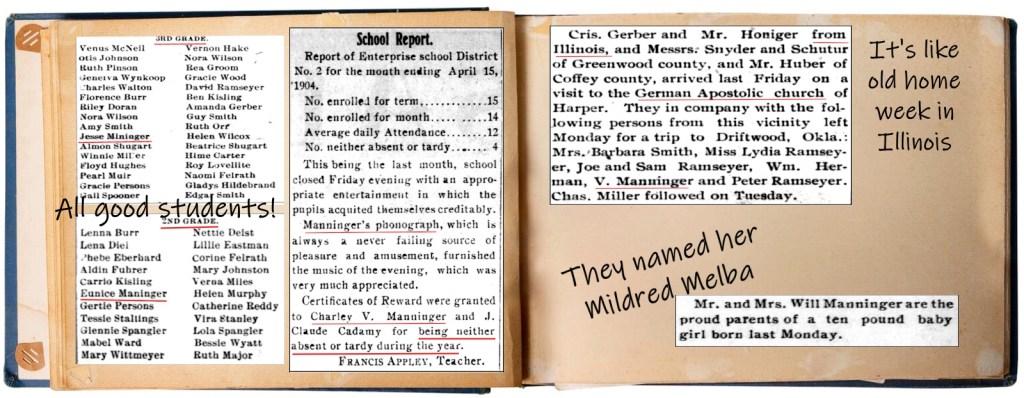 3RD GRADE.
Venus McNeil Vernon Hake
Otis Johnson Nora Wilson
Ruth Pinson Rea Groom
Geneiva Wynkoop Gracie Wood
Charles Walton David Ramseyer
Florence Burr Ben Kisling
Riley Doran Amanda Gerber
Nora Wilson Guy Smith
Amy Smith Ruth Orr
Jesse Mininger Helen Wilcox
Almon Shugart Beatrice Shugart
Winnie Miller Hime Carter
Floyd Hughes Roy Lovellite
Pearl Muir Naomi Felrath
Gracie Persons Gladys Hildebrand
Gail Spooner Edgar Smith
All good students!
2ND GRADE.
Lenna Burr Nettie Deist
Lena Diel Lillie Eastman
Phebe Eberhard Corine Felrath
Aldin Fuhrer Mary Johnston
Carrio Kisling Verna Miles
Eunice Maninger Helen Murphy
Gertie Persons Catherine Reddy
Tessie Stallings Vira Stanley
Glennie Spangler Lola Spangler
Mabel Ward Bessie Wyatt
Mary Wittmeyer Ruth Major
School Report.
Report of Enterprise school District
No. 2 for the month ending April 15,
1904.
No. enrolled for term............15
No. enrolled for month..........14
Average daily Attendance.......12
No. neither absent or tardy..... 4
This being the last month, school
closed Friday evening with an appro-
priate entertainment in which the
pupils acquitted themselves creditably.
Manninger's phonograph, which is
always a never failing source of
pleasure and amusement, furnished
the music of the evening, which was
very much appreciated.
Certificates of Reward were granted
to Charley V. Manninger and J.
Claude Cadamy for being neither
absent or tardy during the year.
FRANCIS APPLEY, Teacher.
Cris. Gerber and Mr. Honiger from
Illinois, and Messrs. Snyder and Schutur
of Greenwood county, and Mr. Huber of
Coffey county, arrived last Friday on a
visit to the German Apostolic church of
Harper. They in company with the fol-
lowing persons from this vicinity left
Monday for a trip to Driftwood, Okla.:
Mrs. Barbara Smith, Miss Lydia Ramsey-
er, Joe and Sam Ramseyer, Wm. Her-
man, V. Manninger and Peter Ramseyer.
Chas. Miller followed on Tuesday.
It's like
old home
week in
Illinois
They named her
Mildred Melba
Mr. and Mrs. Will Manninger are the
proud parents of a ten pound baby
girl born last Monday.